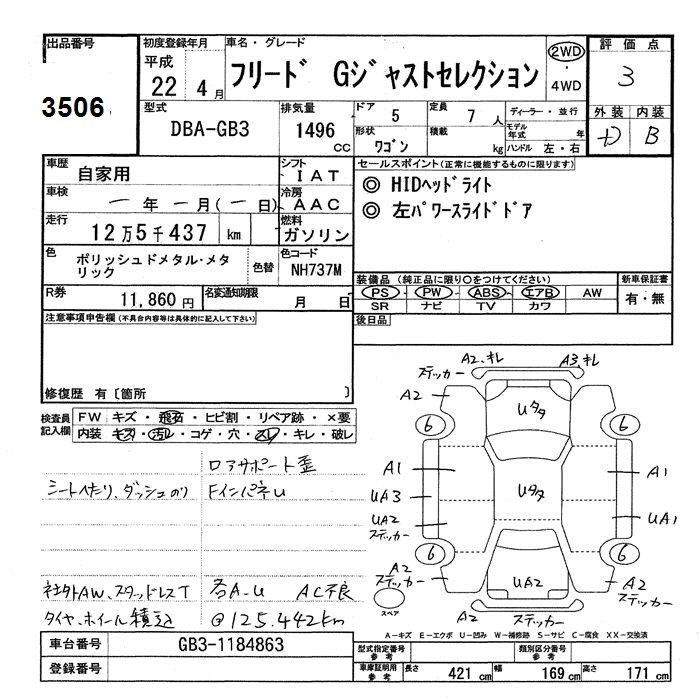 出品番号
3506
初度登録年月
平成
22 4月
車名・グレード
フリード Gジャストセレクション
2WD
・
4WD
評価点
3
型式
DBA-GB3
排気量
1496
cc
ドア 5
形状
ワゴン
定員 7 人
積載 kg
ディーラー・並行
モデル年式 年
ハンドル 左・右
外装 内装
+D B
車歴
自家用
シフト
I A T
車検
ー年ー月(ー日)
冷房
A A C
走行
12万5千437 km
燃料
ガソリン
色
ポリッシュドメタル・メタ
リック
色替
色コード
NH737M
R券
11,860円
名変通知期限
月 日
セールスポイント(正常に機能するものに限ります)
◎ HIDヘッドライト
◎ 左パワースライドドア
装備品 (純正品に限り○をつけてください)
PS・PW・ABS・エアB・AW
SR ナビ TV カワ
新車保証書
有・無
後日品
注意事項申告欄(不具合内容等は具体的に記入して下さい)
修復歴 有〔箇所 〕
検査員
記入欄
FW キズ・飛石・ヒビ割・リペア跡・×要
内装 キズ・汚レ・コゲ・穴・スレ・キレ・破レ
ロアサポート歪
シートへたり、ダッシュのり
FインパネU
社外AW、スタッドレスT
各A-U AC不良
タイヤ、ホイール積込
@125.442km
A2、キレ
ステッカー
A3、キレ
A2
A2
Uタタ
6
6
A1
A1
UA3
Uタタ
UA2
ステッカー
UA1
6
6
A2
ステッカー
UA2
A2
ステッカー
スペア
A2
ステッカー
A-キズ E-エクボ U-凹み W-補修跡 S-サビ C-腐食 XX-交換済
車台番号
GB3-1184863
登録番号
型式指定番号
参考
類別区分番号
参考
車庫証明用
参考
長さ 421 cm
幅 169 cm
高さ 171 cm